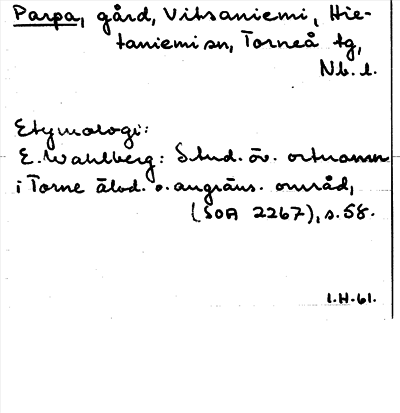 Parpa, gård, Vitsaniemi, Hie-
taniemi sn, Torneå tg,
Nb. l.
Etymologi:
E. Wahlberg: Stud. öv. ortnamn
i Torne älvd. o. angräns. områd,
(SOA 2267), s. 58.
l.H-61.